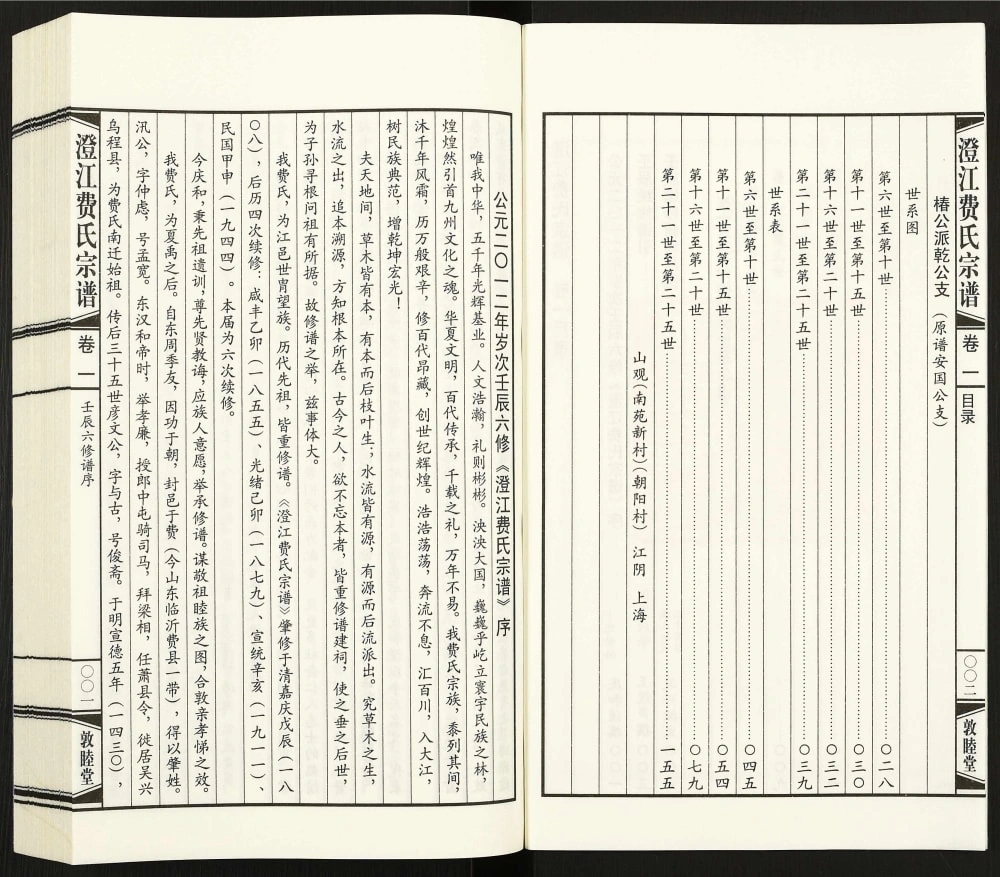 澄江费氏宗谱
卷一
目录
〇〇二
敦睦堂
椿公派乾公支（原谱安国公支）
世系图
第六世至第十世……〇二八
第十一世至第十五世……〇三〇
第十六世至第二十世……〇三二
第二十一世至第二十五世……〇三九
世系表
第六世至第十世……〇四五
第十一世至第十五世……〇五四
第十六世至第二十世……〇七九
第二十一世至第二十五世……一五五
山观（南苑新村）（朝阳村） 江阴 上海
公元二〇一二年岁次壬辰六修《澄江费氏宗谱》序
唯我中华，五千年光辉基业。人文浩瀚，礼则彬彬。泱泱大国，巍巍乎屹立寰宇民族之林，
煌煌然引首九州文化之魂。华夏文明，百代传承，千载之礼，万年不易。我费氏宗族，黍列其间，
沐千年风霜，历万般艰辛，修百代昂藏，创世纪辉煌。浩浩荡荡，奔流不息，汇百川，入大江，
树民族典范，增乾坤宏光！
夫天地间，草木皆有本，有本而后枝叶生；水流皆有源，有源而后流派出。究草木之生，
水流之出，追本溯源，方知根本所在。古今之人，欲不忘本者，皆重修谱建祠，使之垂之后世，
为子孙寻根问祖有所据。故修谱之举，兹事体大。
我费氏，为江邑世胄望族。历代先祖，皆重修谱。《澄江费氏宗谱》肇修于清嘉庆戊辰（一八
〇八），后历四次续修：咸丰乙卯（一八五五）、光绪己卯（一八七九）、宣统辛亥（一九一一）、
民国甲申（一九四四）。本届为六次续修。
今庆和，秉先祖遗训，尊先贤教诲，应族人意愿，举承修谱。谋敬祖睦族之图，合敦亲孝悌之效。
我费氏，为夏禹之后。自东周季友，因功于朝，封邑于费（今山东临沂费县一带），得以肇姓。
汛公，字仲虑，号孟宽。东汉和帝时，举孝廉，授郎中屯骑司马，拜梁相，任萧县令，徙居吴兴
乌程县，为费氏南迁始祖。传后三十五世彦文公，字与古，号俊斋。于明宣德五年（一四三〇），
澄江费氏宗谱
卷一
壬辰六修谱序
〇〇一
敦睦堂